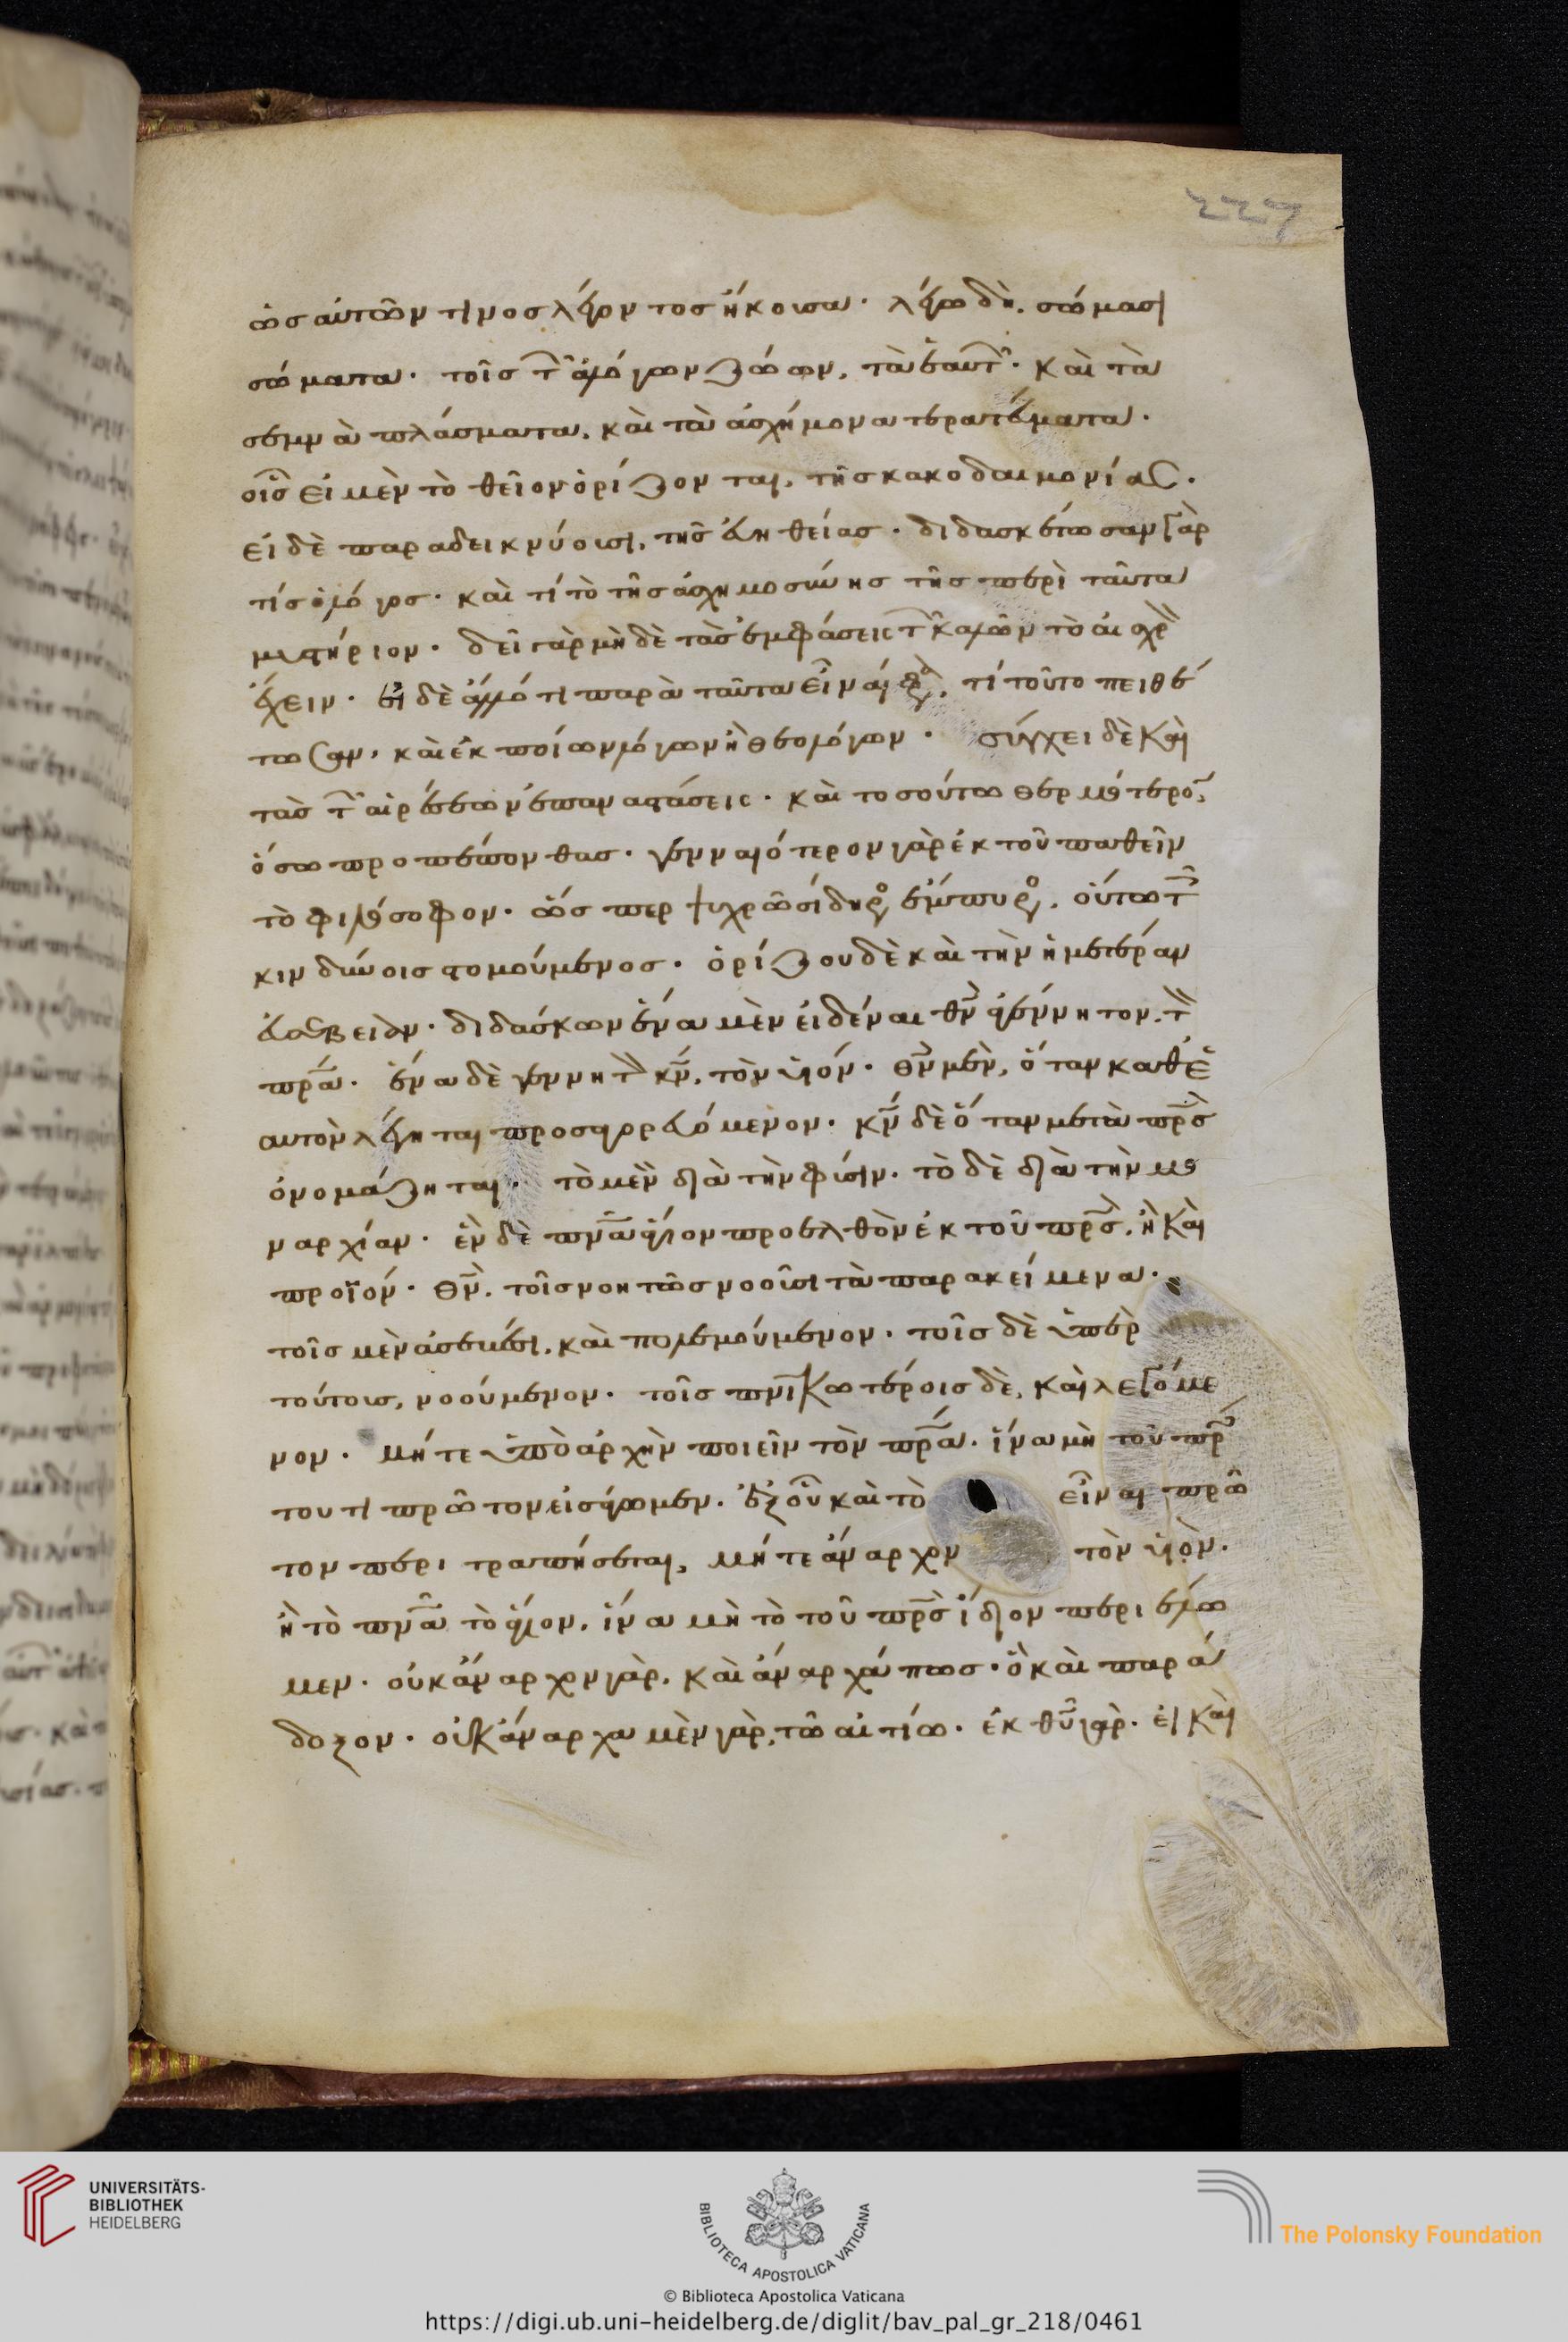 ὡς αὐτῶν τινος λέγοντος ἤκουσα· λέγω δὴ, σώμασι
σώματα· τοῖς τῶ ἀλόγων ζώων, τὰ ἑαυτῶ· καὶ τὰ
σεμνὰ πλάσματα, καὶ τὰ ἀσχήμονα τερατεύματα·
οἷς εἰ μὲν τὸ θεῖον ὁρίζονται, τῆς κακοδαιμονίας·
εἰ δὲ παραδεικνύουσι, τῆς ἀληθείας· διδασκέτωσαν γὰρ
τίς ὁ λόγος· καὶ τί τὸ τῆς ἀσχημοσύνης τῆς περὶ ταῦτα
μυστήριον· δεῖ γὰρ μὴ δὲ τὰς ἐμφάσεις τῶ καλῶν τὸ αἰσχρὸν
ἔχειν· εἰ δὲ ἄλλό τι παρὰ ταῦτα εἶναι, τί τοῦτο πειθέ
τωσαν, καὶ ἐκ ποίων λόγων ἢ θεολόγων· συγχεῖ δὲ καὶ
τὰς τῶ αἱρέσεων ἐπαναστάσεις· καὶ τοσούτω θερμότερον
ὅσω προπεπονθας· γενναιότερον γὰρ ἐκ τοῦ παθεῖν
τὸ φιλόσοφον· ὥσπερ ψυχρῶ σίδηρος ἔμπυρος, οὕτω τοῖς
κινδύνοις στομούμενος· ὁρίζου δὲ καὶ τὴν ἡμετέραν
εὐσέβειαν· διδάσκων ἕνα μὲν εἰδέναι θν ἀγέννητον, τὸν
πρα· ἕνα δὲ γεννητὸν κν, τὸν υἱόν· θν μὲν, ὅταν καθ' ἑ
αυτὸν λέγηται προσαγορευόμενον· κν δὲ ὅταν μετὰ πρς
ὀνομάζηται· τὸ μὲν διὰ τὴν φύσιν· τὸ δὲ διὰ τὴν μο
ναρχίαν· ἓν δὲ πνα ἅγιον προελθὸν ἐκ τοῦ πρς, ἢ καὶ
προϊόν· θν, τοῖς νοητῶς νοοῦσι τὰ παρακείμενα·
τοῖς μὲν ἀσεβέσι, καὶ πολεμούμενον· τοῖς δὲ ὑπὲρ
τούτους, νοούμενον· τοῖς πνικωτέροις δὲ, καὶ λεγόμε
νον· μήτε ὑπὸ ἀρχὴν ποιεῖν τὸν πρα· ἵνα μὴ τοῦ πρώ
του τι πρῶτον εἰσάγωμεν· ἐξ οὗ καὶ τὸ εἶναι πρώ
τον περιτραπήσεται, μήτε ἄναρχον τὸν υἱὸν·
ἢ τὸ πνα τὸ ἅγιον, ἵνα μὴ τὸ τοῦ πρς ἴδιον περιέλω
μεν· οὐκ ἄναρχον γὰρ, καὶ ἄναρχά πως· ὃ καὶ παρά
δοξον· οὐκ ἄναρχα μὲν γὰρ, τῶ αἰτίω· ἐκ θυ γὰρ· εἰ καὶ
UNIVERSITÄTS-
BIBLIOTHEK
HEIDELBERG
BIBLIOTECA APOSTOLICA VATICANA
The Polonsky Foundation
© Biblioteca Apostolica Vaticana
https://digi.ub.uni-heidelberg.de/diglit/bav_pal_gr_218/0461